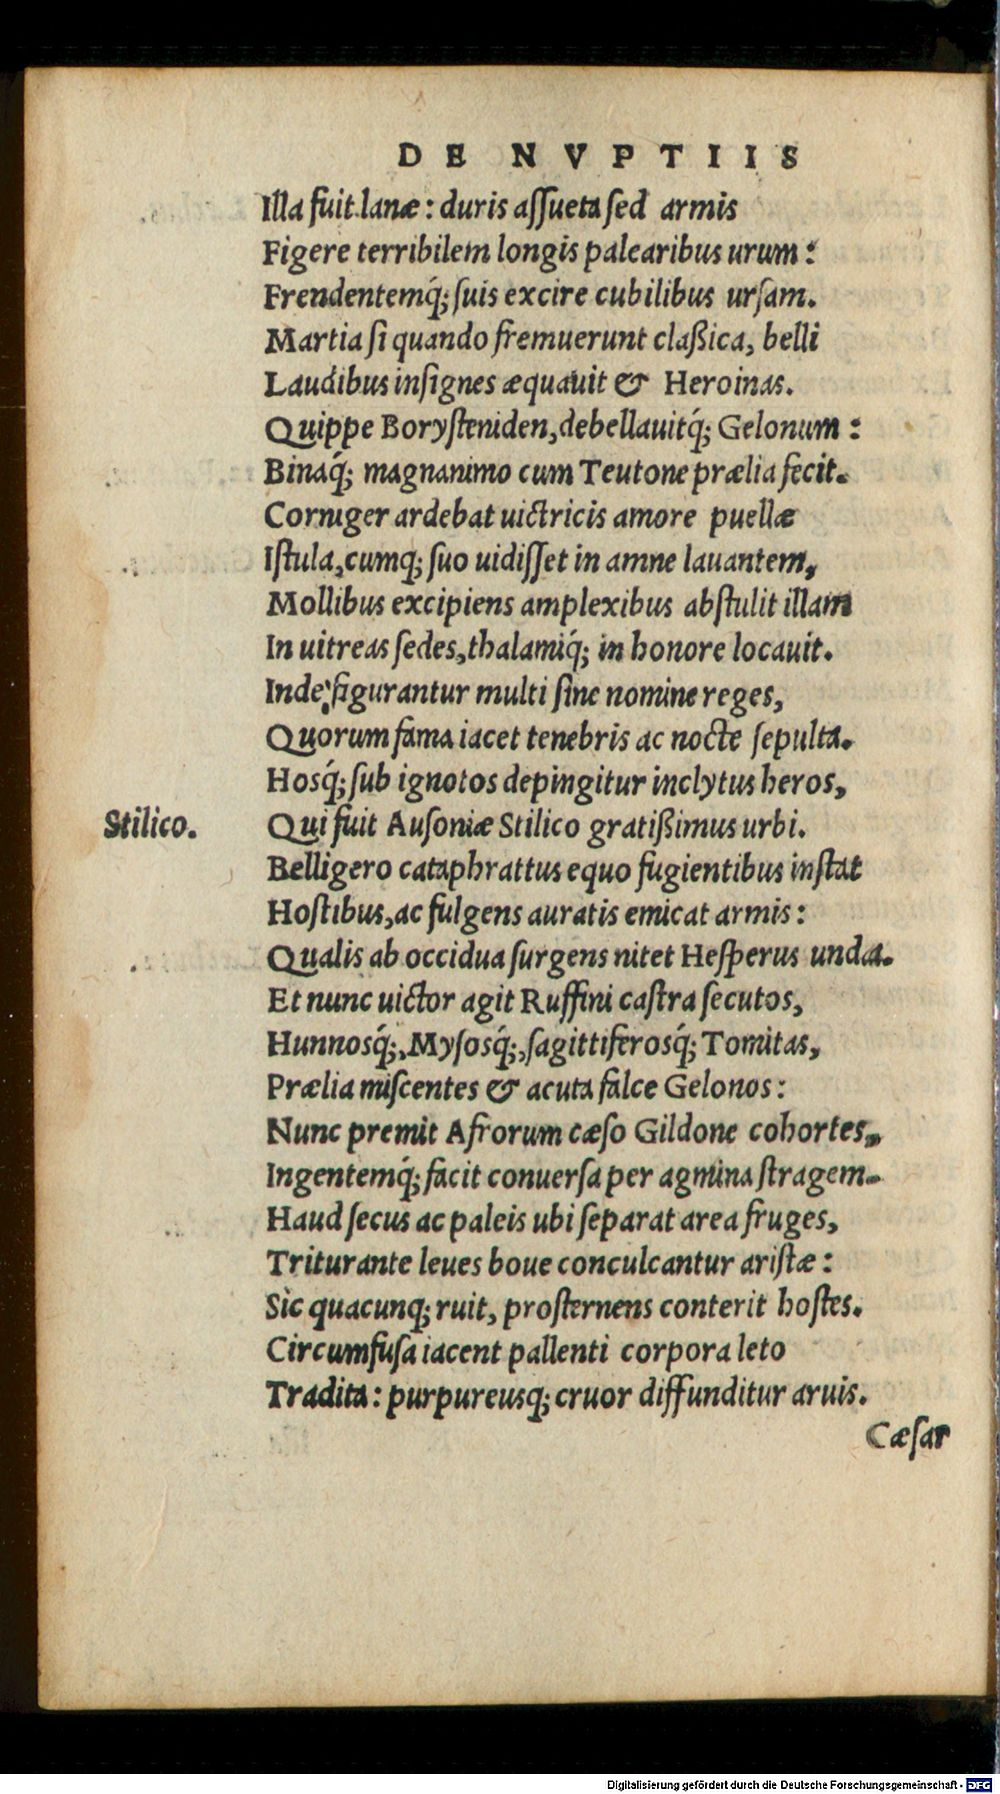 DE NVPTIIS
Illa fuit lanæ: duris aſſueta ſed armis
Figere terribilem longis palearibus urum:
Frendentemq́; ſuis excire cubilibus urſam.
Martia ſi quando fremuerunt claßica, belli
Laudibus inſignes æquauit & Heroinas.
Quippe Boryſteniden, debellauitq́; Gelonum:
Binaq́; magnanimo cum Teutone prælia fecit.
Corniger ardebat uictricis amore puellæ
Iſtula, cumq; ſuo uidiſſet in amne lauantem,
Mollibus excipiens amplexibus abſtulit illam
In uitreas ſedes, thalamiq́; in honore locauit.
Inde figurantur multi ſine nomine reges,
Quorum fama iacet tenebris ac nocte ſepulta.
Hosq́; ſub ignotos depingitur inclytus heros,
Stilico. Qui fuit Auſoniæ Stilico gratißimus urbi.
Belligero cataphrattus equo fugientibus inſtat
Hoſtibus, ac fulgens auratis emicat armis:
Qualis ab occidua ſurgens nitet Heſperus unda.
Et nunc uictor agit Ruffini caſtra ſecutos,
Hunnosq́;, Myſosq́;, ſagittiferosq́; Tomitas,
Prælia miſcentes & acuta falce Gelonos:
Nunc premit Afrorum cæſo Gildone cohortes,
Ingentemq́; facit conuerſa per agmina ſtragem.
Haud ſecus ac paleis ubi ſeparat area fruges,
Triturante leues boue conculcantur ariſtæ:
Sic quacunq; ruit, proſternens conterit hoſtes.
Circumfuſa iacent pallenti corpora leto
Tradita: purpureusq; cruor diffunditur aruis.
Cæſar
Digitalisierung gefördert durch die Deutsche Forschungsgemeinschaft - DFG